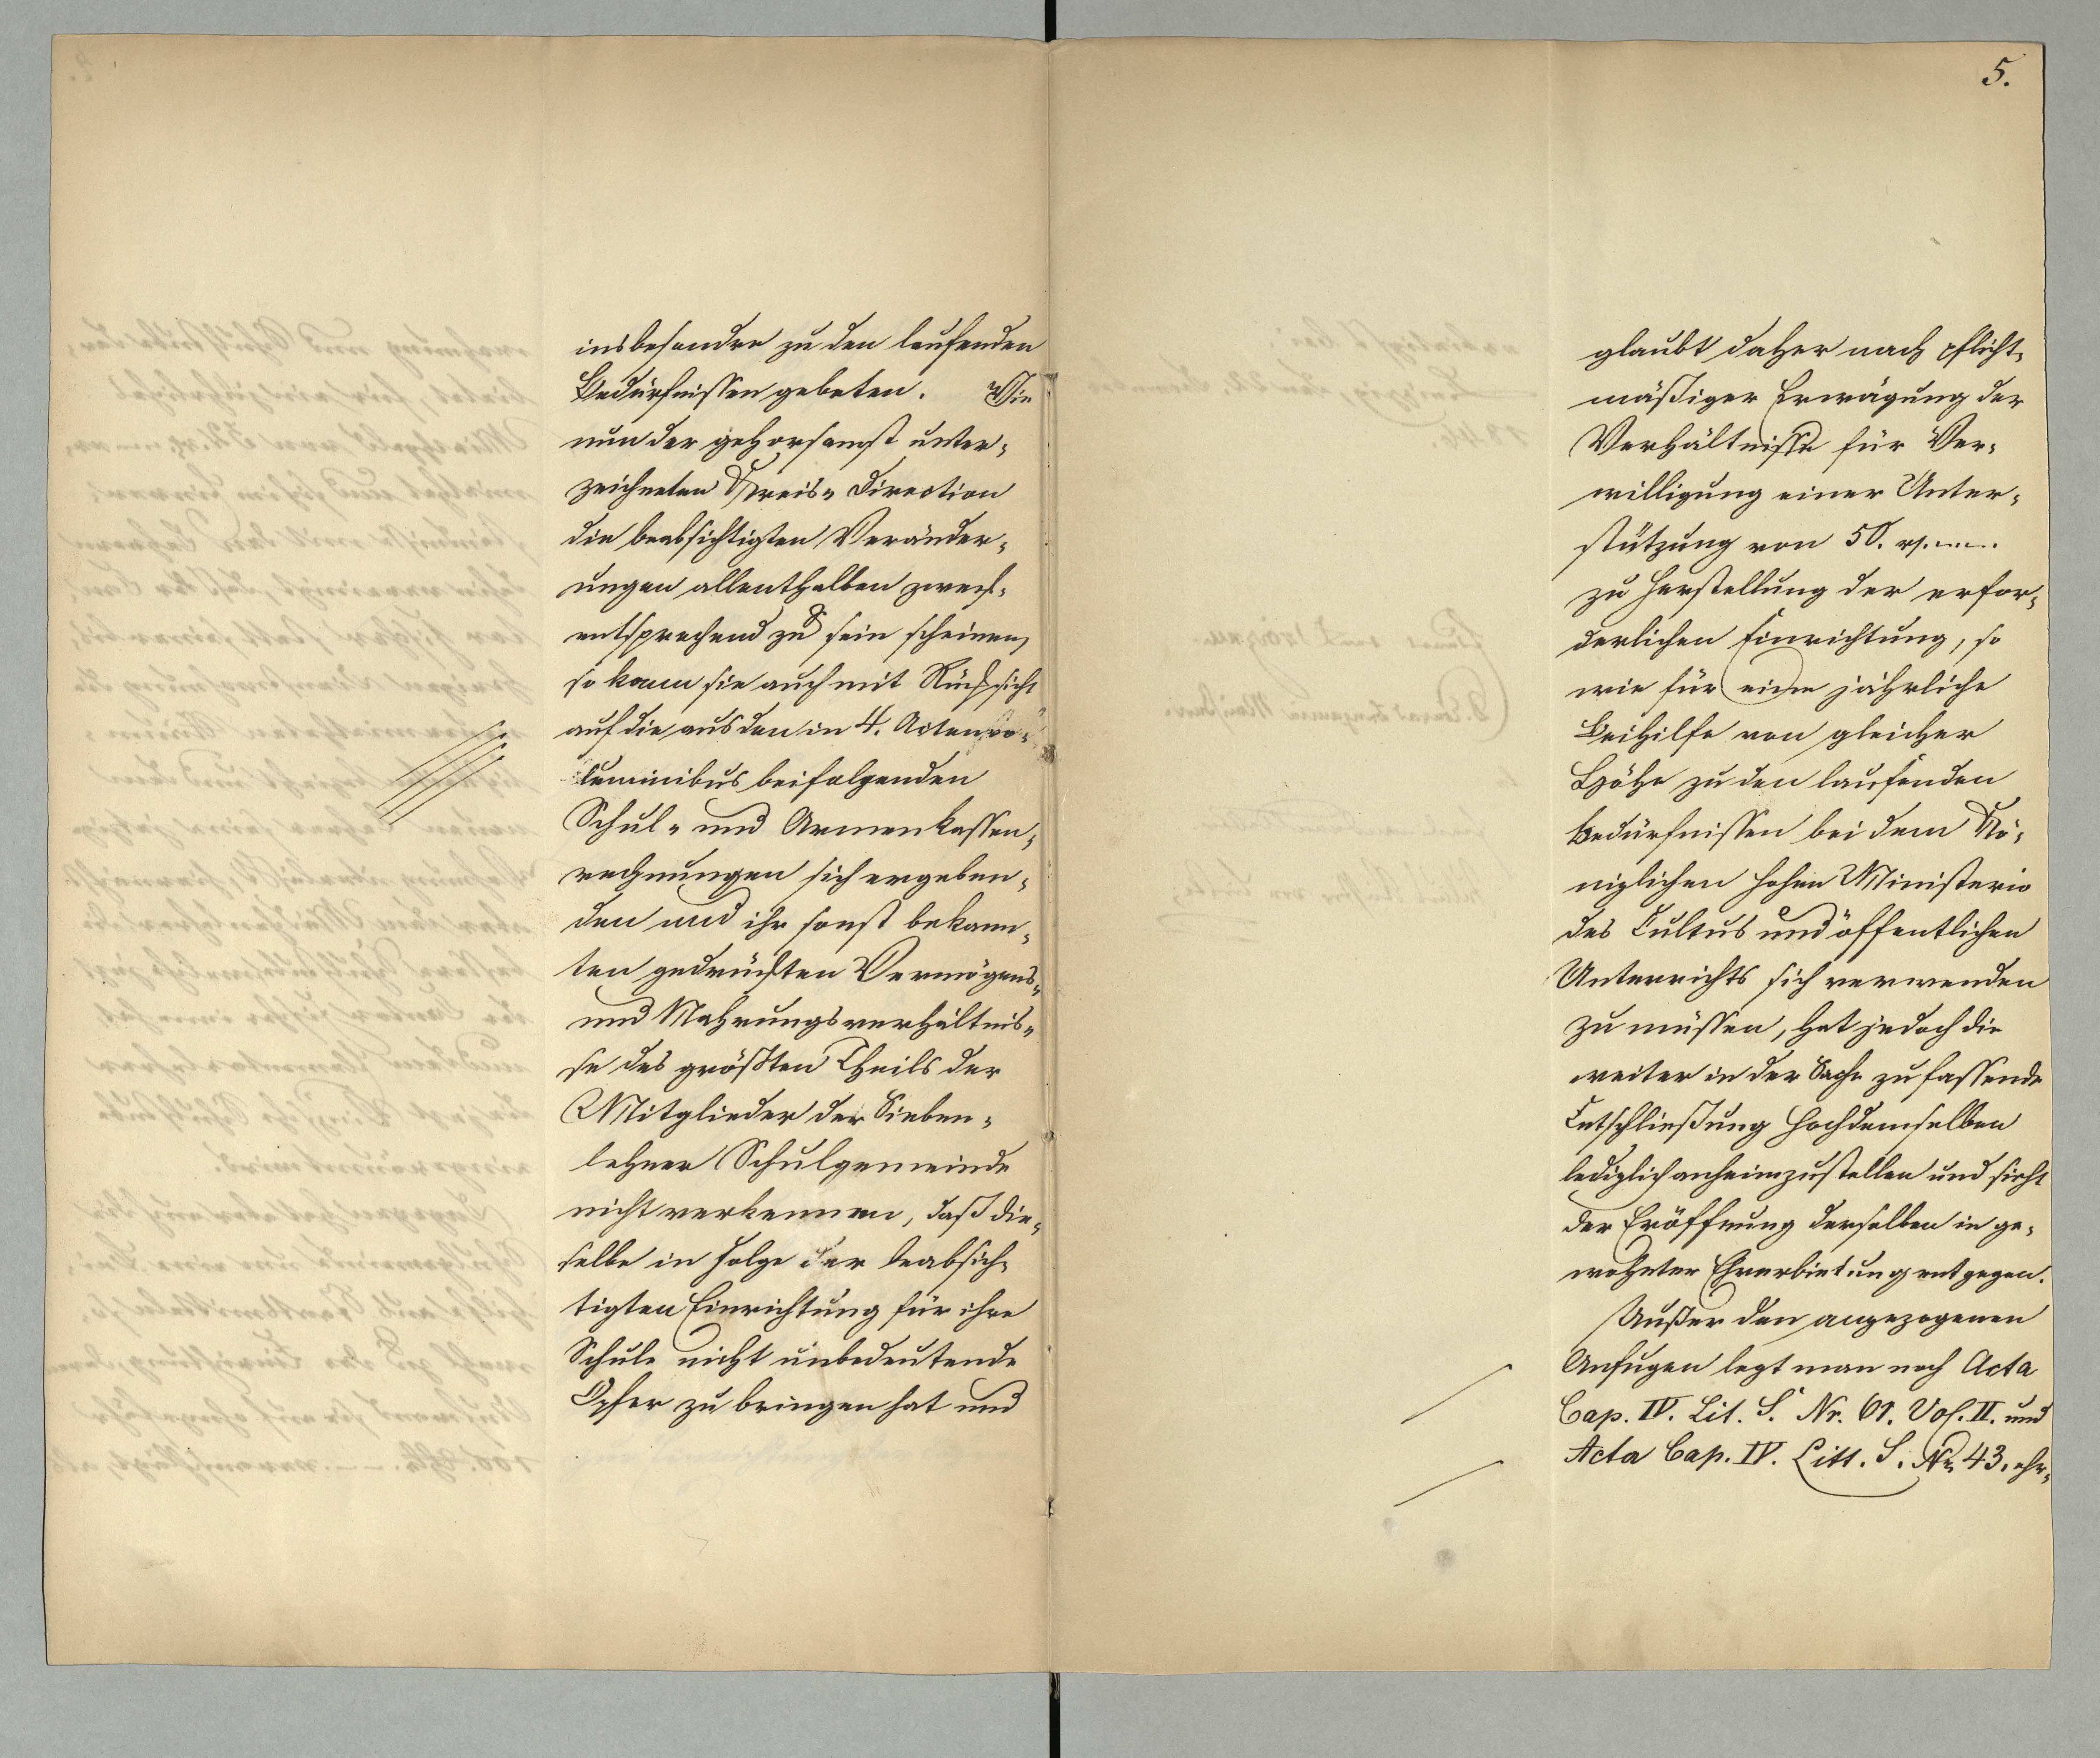 insbesondre zu den laufenden
Bedürfnissen gebeten. Wie
nun der gehorsamst unter-
zeichneten Kreis- Direction
die beabsichtigten Veränder-
ungen allenthalben zweck-
entsprechend zu sein scheinen,
so kann sie auch mit Rücksicht
auf die aus den in 4. Actenvo-
luminibus beifolgenden
Schul- und Armenkassen-
rechnungen sich ergeben-
den und ihr sonst bekann-
ten gedrückten Vermögens-
und Nahrungsverhältnis-
se des größten Theils der
Mitglieder der Sieben-
lehner Schulgemeinde
nicht verkennen, daß die-
selbe in Folge der beabsich-
tigten Einrichtung für ihre
Schule nicht unbedeutende
Opfer zu bringen hat und
5.
glaubt daher nach pflicht-
mäßiger Erwägung der
Verhältnisse für Ver-
willigung einer Unter-
stützung von 50. rh.
zu Herstellung der erfor-
derlichen Einrichtung, so
wie für eine jährliche
Beihilfe von gleicher
Höhe zu den laufenden
Bedürfnissen bei dem Kö-
niglichen hohen Ministerio
des Cultus und öffentlichen
Unterrichts sich verwenden
zu müssen, hat jedoch die
weiter in der Sache zu fassende
Entschließung Hochdemselben
lediglich anheimzustellen und sieht
der Eröffnung derselben in ge-
wohnter Ehrerbietung entgegen.
Außer den angezogenen
Anfugen legt man noch Acta
Cap. IV. Lit. S. Nr. 61. Vol. II. und
Acta Cap. IV. Litt. S. Nr 43. ehr-